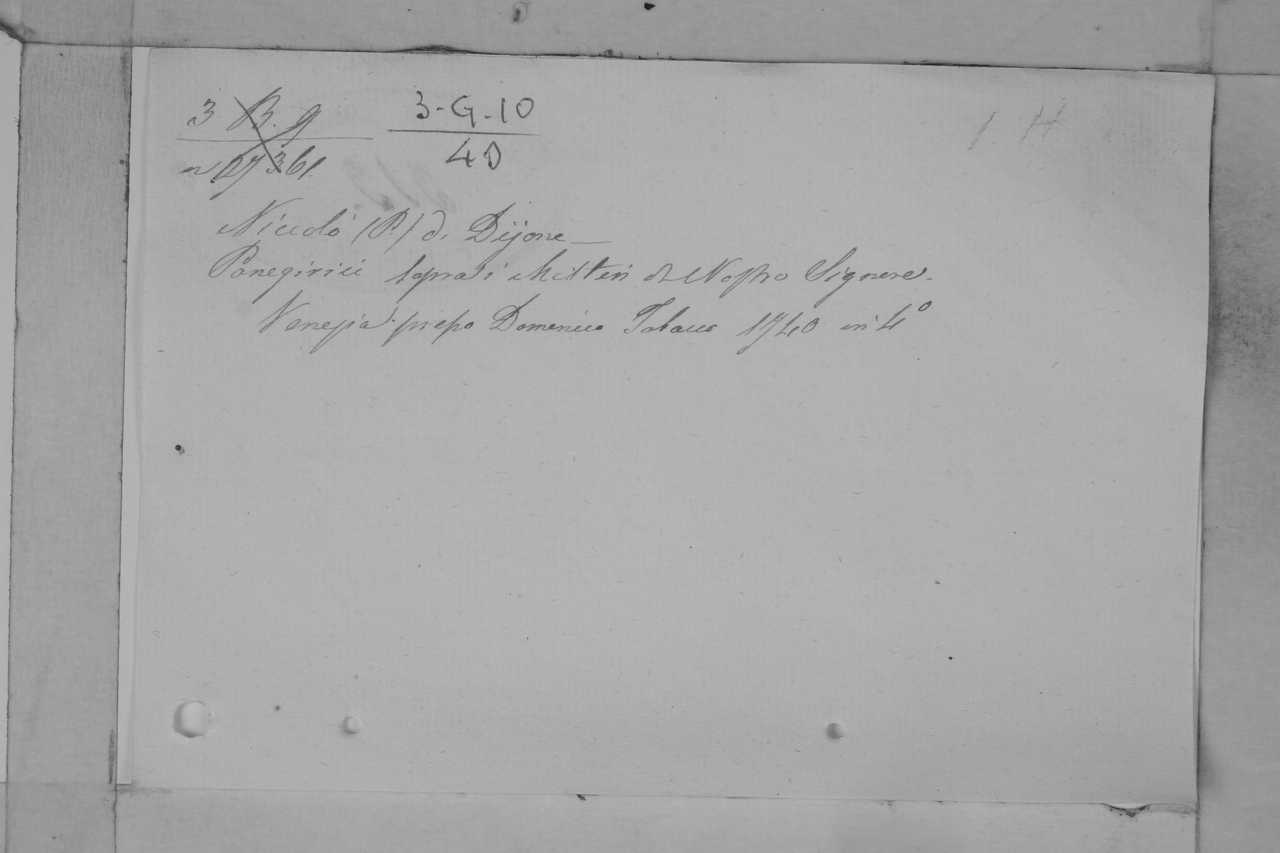 3 B. 9 3-G-10
n 27361 40
1. H
Niccolò (P.) di Dijone —
Panegirici sopra i Misteri di Nostro Signore.
Venezia presso Domenico Tabacco 1740 in 4º